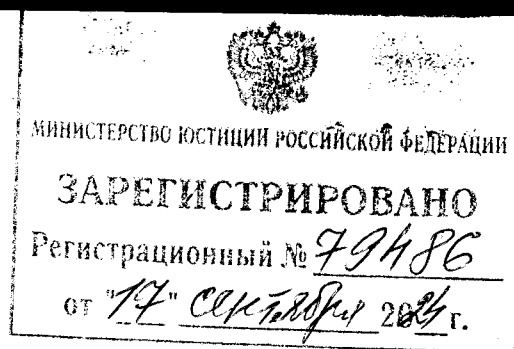 МИНИСТЕРСТВО ЮСТИЦИИ РОССИЙСКОЙ ФЕДЕРАЦИИ
ЗАРЕГИСТРИРОВАНО
Регистрационный № 79486
от "17" сентября 2024 г.